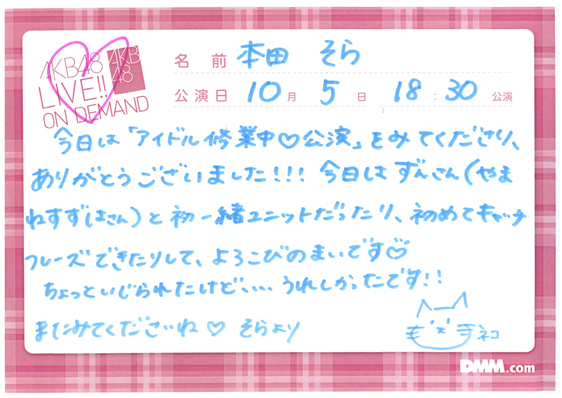 AKB48
LIVE!!
ON DEMAND
AKB
48
名前 本田 そら
公演日 10月 5日 18:30 公演
今日は「アイドル修業中♡公演」をみてくださり、
ありがとうございました!!! 今日は ずんさん(やま
ねすずはさん)と初一緒ユニットだったり、初めてキャッチ
フレーズできたりして、よろこびのまいです♡
ちょっといじられたけど、... うれしかったです!!
またみてくださいね♡ そらより
ネコ
DMM.com